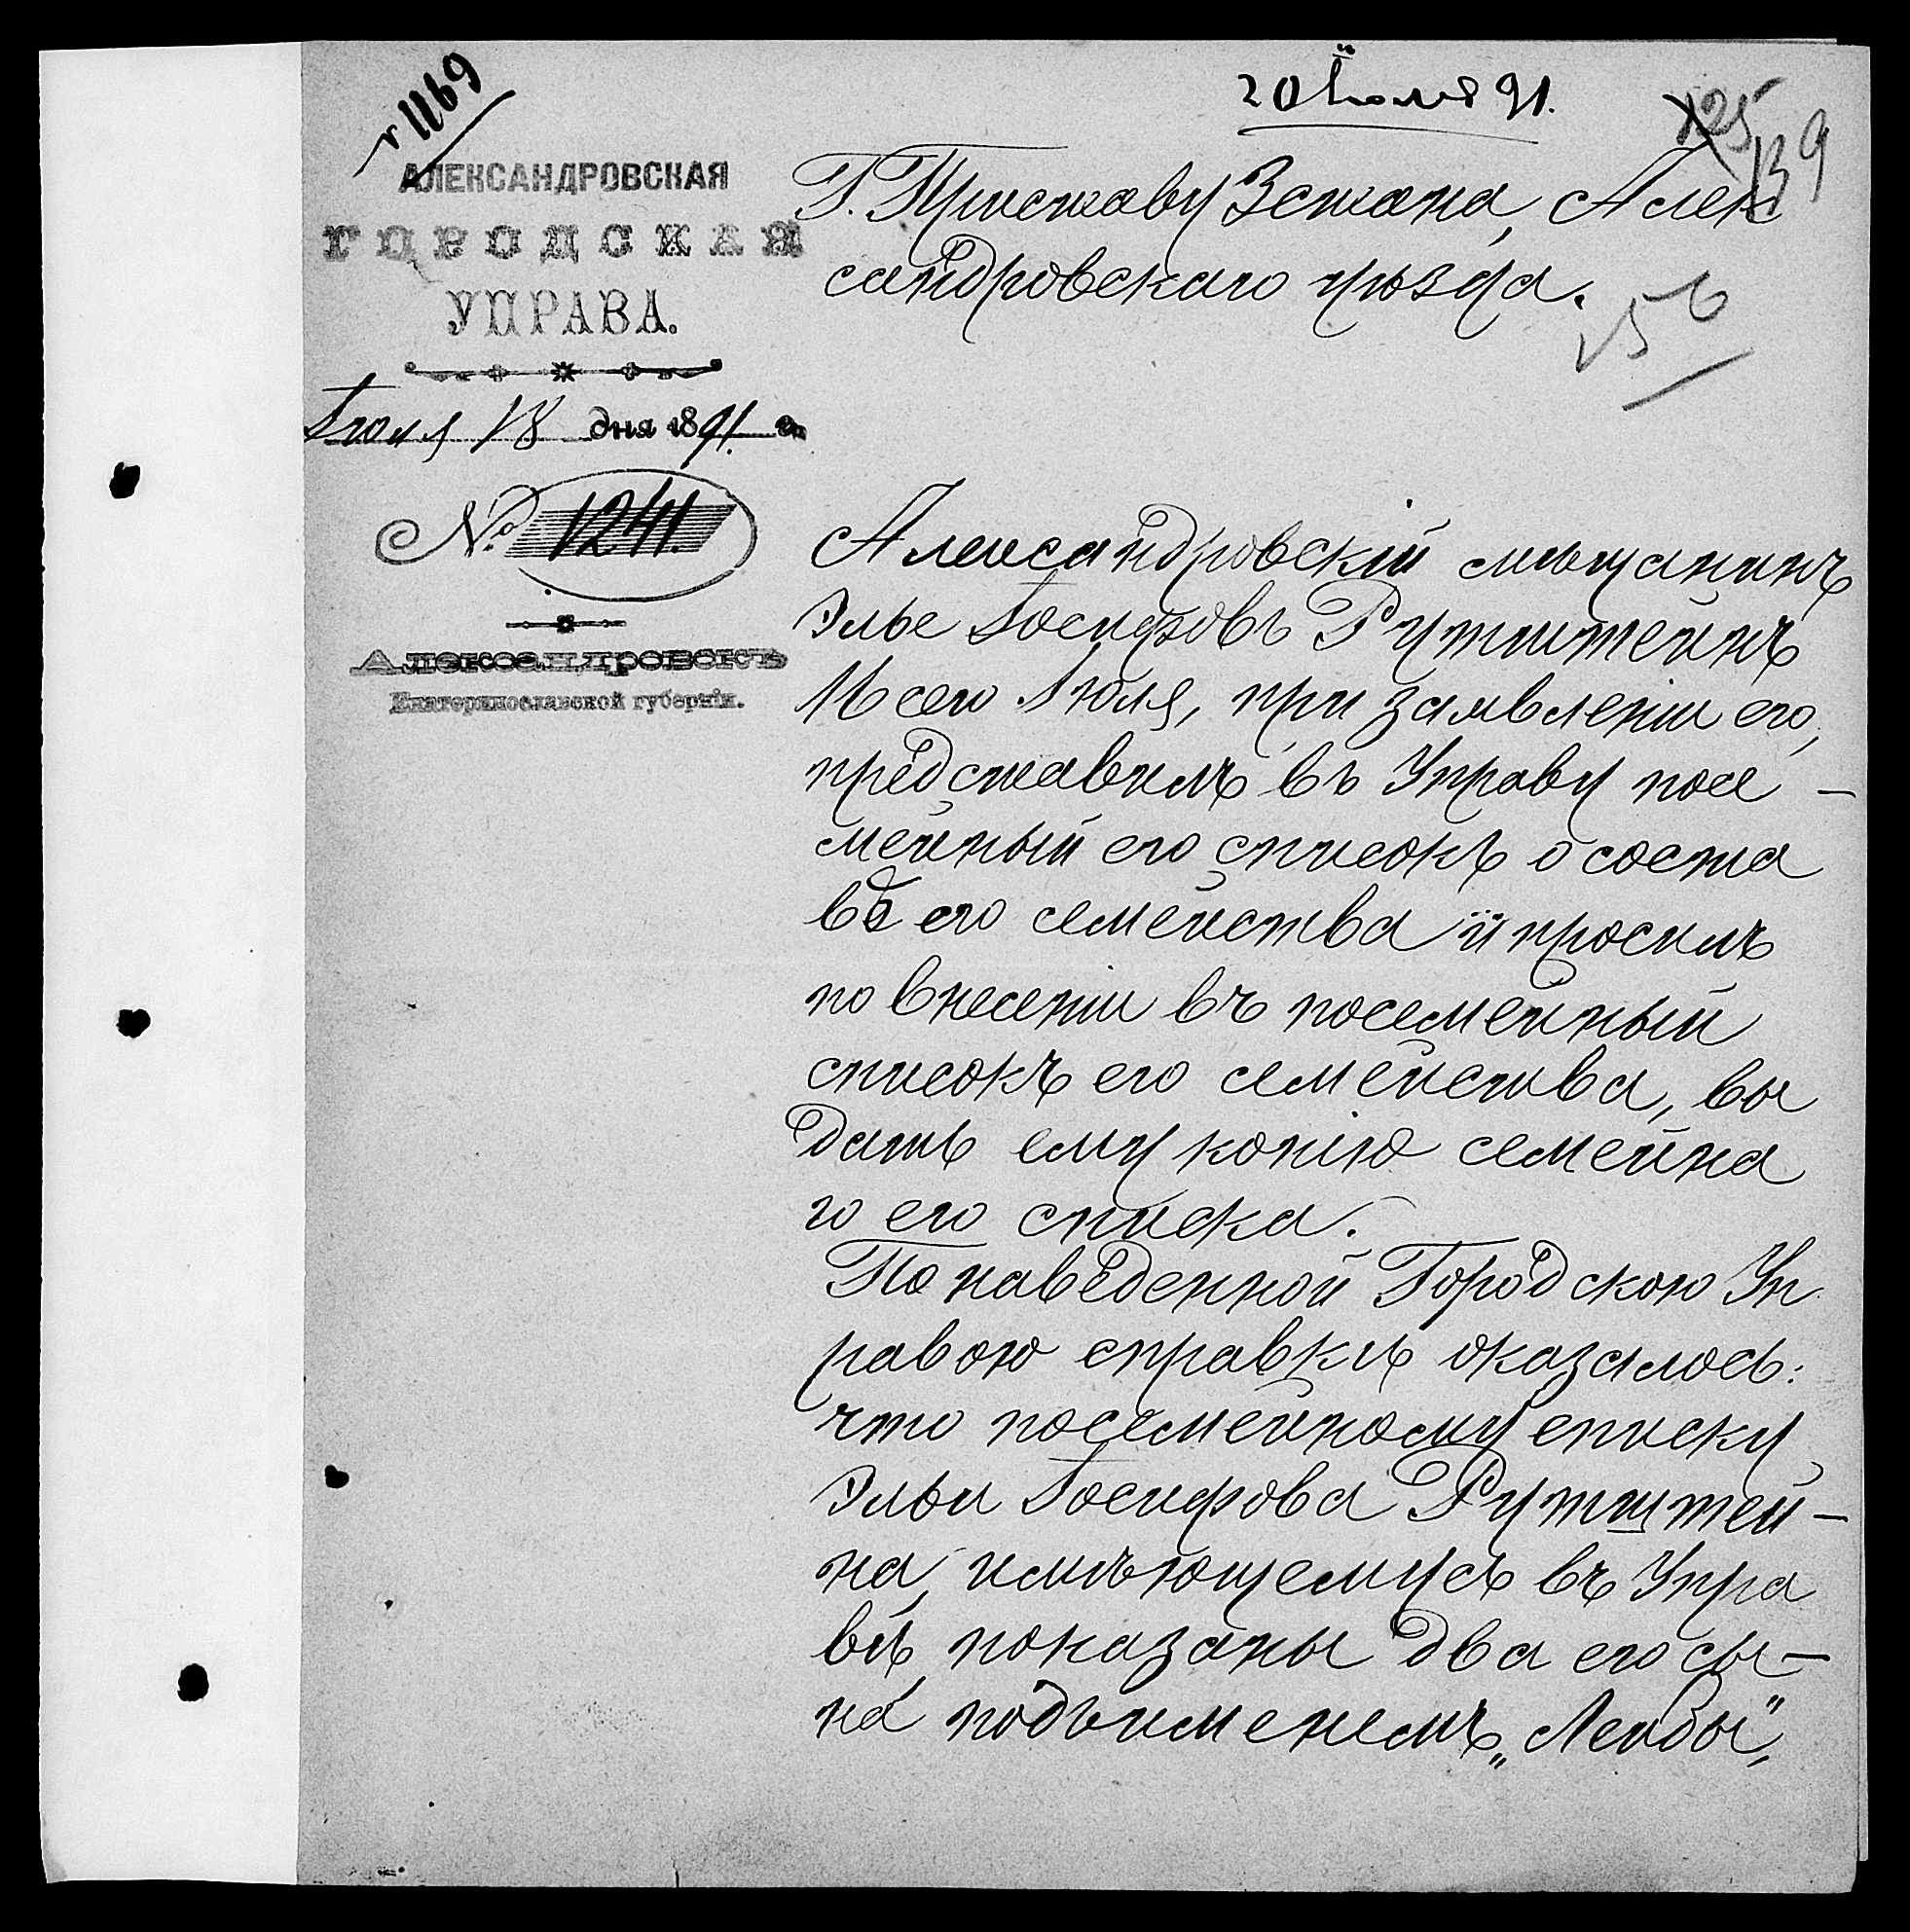 № 1169
20 Июля 91.
125
139
АЛЕКСАНДРОВСКАЯ
ГОРОДСКАЯ
УПРАВА.
Іюля 18 дня 1891 г.
№ 1241.
Александровскъ
Екатеринославской губерніи.
Г. Приставу 3 стана, Алек
сандровскаго уѣзда.
56
Александровскій мѣщанинъ
Элье Іосифовъ Рутштейнъ
16 сего Іюля, при заявленіи его,
представилъ въ Управу посе-
мейный его списокъ о соста
вѣ его семейства и просилъ
по внесеніи въ посемейный
списокъ его семейства, вы
дать ему копію семейна
го его списка.
По наведенной Городскою Уп
равою справкѣ оказалось:
что посемейному списку
Эльи Іосифова Рутштей-
на, имѣющемусь въ Упра
вѣ, показаны два его сы-
на подъ именемъ „Лейбы",